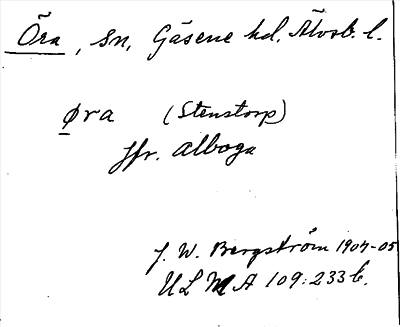 Öra, sn, Gäsene hd, Älvsb. l.
øra (Stenstorp)
jfr. Alboga
J. W. Bergström 1904-05
ULMA 109:233 b.